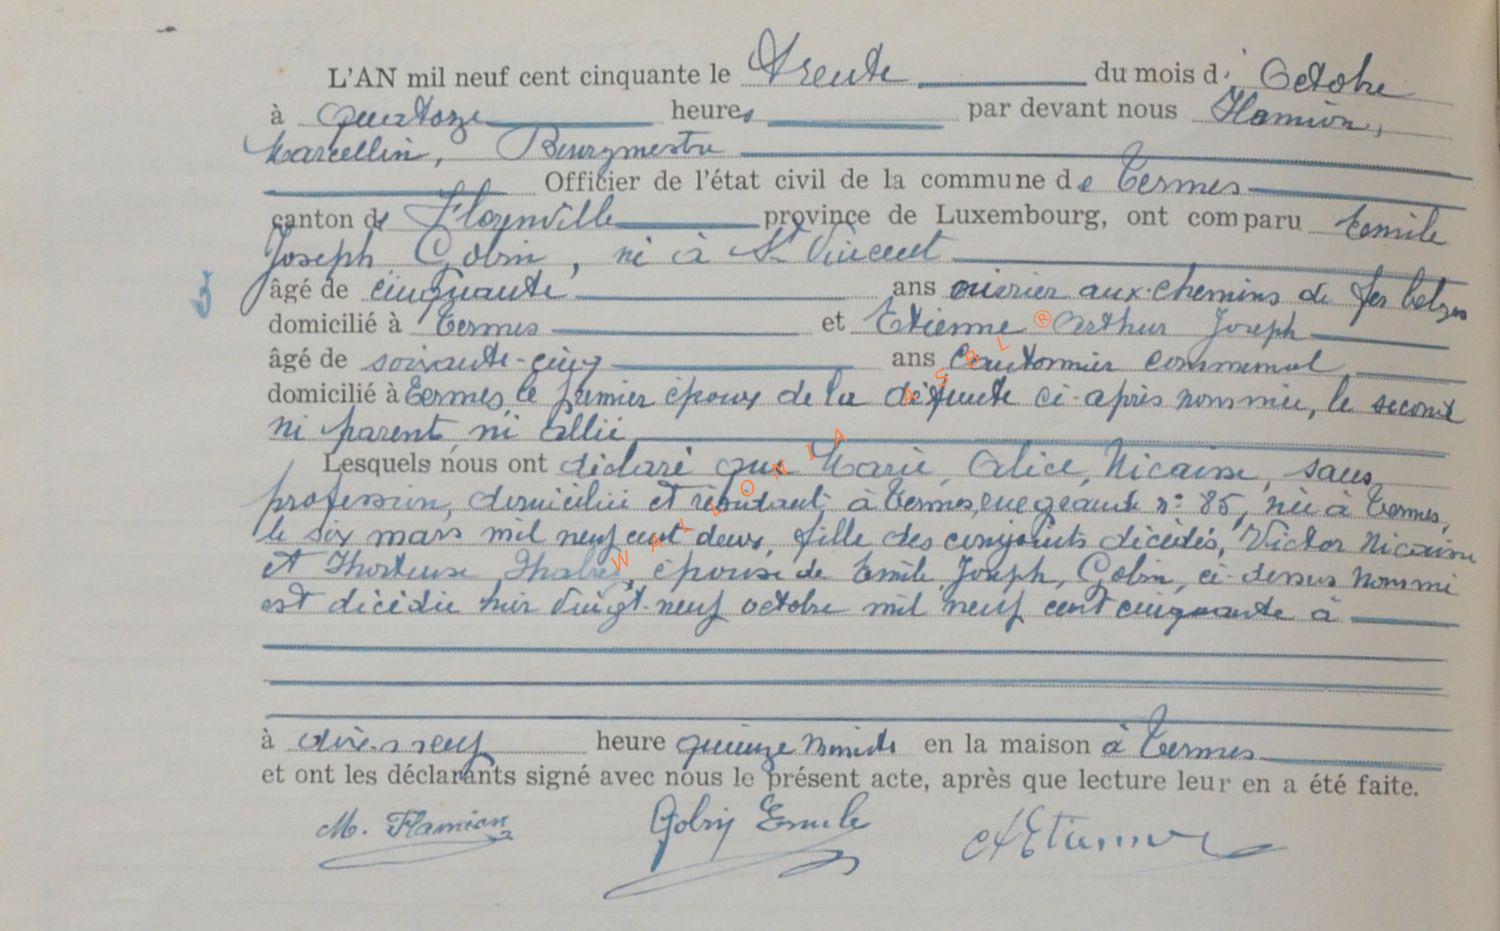 L'AN mil neuf cent cinquante le Trente du mois d' Octobre
à quatorze heures par devant nous Flamion,
Marcellin, Bourgmestre
Officier de l'état civil de la commune de Termes
canton de Florenville province de Luxembourg, ont comparu Emile
Joseph Gobin, né à St Vincent
3 âgé de cinquante ans ouvrier aux chemins de fer belges
domicilié à Termes et Etienne Arthur Joseph
âgé de soixante-cinq ans Cantonnier communal
domicilié à Termes le premier époux de la défunte ci-après nommée, le second
ni parent, ni allié
Lesquels nous ont déclaré que Marie, Alice, Nicaise, sans
profession, domiciliée et résidant à Termes, rue géante n° 85, née à Termes,
le six mars mil neuf cent deux, fille des conjoints décédés, Victor Nicaise
et Hortense, épouse de Emile, Joseph, Gobin, ci-dessus nommé
est décédée hier vingt-neuf octobre mil neuf cent cinquante à
à dix-neuf heure quinze minutes en la maison à Termes
et ont les déclarants signé avec nous le présent acte, après que lecture leur en a été faite.
M. Flamion Gobin Emile A Etienne
WALLONIA ASBL ®